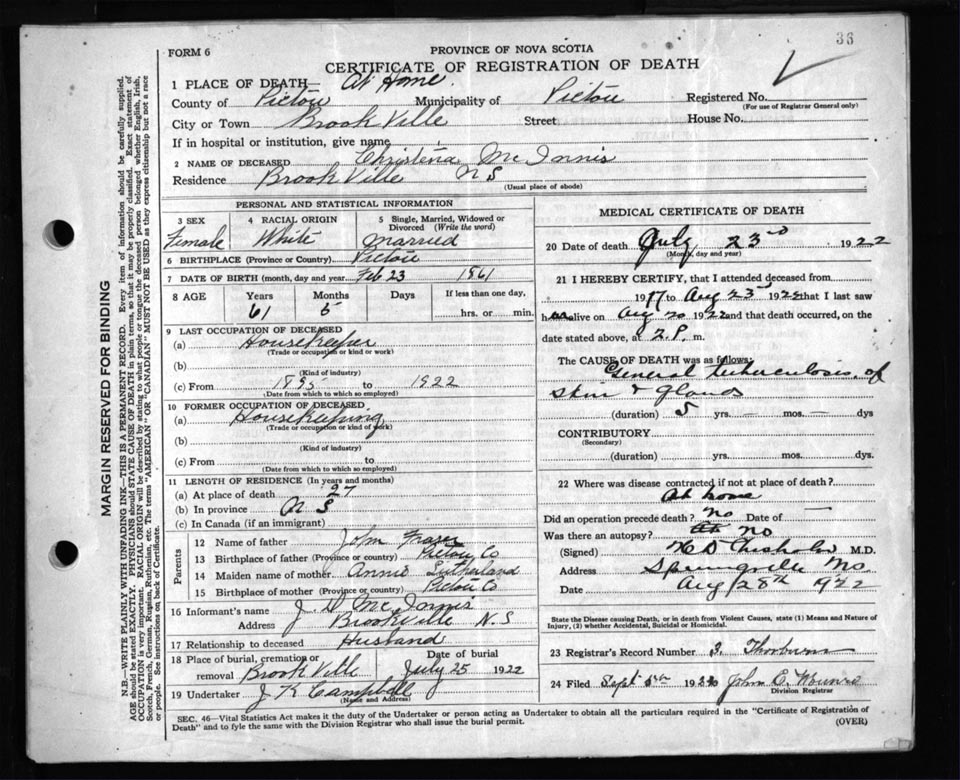 36
FORM 6
PROVINCE OF NOVA SCOTIA
CERTIFICATE OF REGISTRATION OF DEATH
1 PLACE OF DEATH— At Home
County of Pictou Municipality of Pictou Registered No.
(For use of Registrar General only)
City or Town Brook Ville Street House No.
If in hospital or institution, give name
2 NAME OF DECEASED Christena McInnis
Residence Brook Ville N S
(Usual place of abode)
PERSONAL AND STATISTICAL INFORMATION
3 SEX 4 RACIAL ORIGIN 5 Single, Married, Widowed or Divorced (Write the word)
Female White Married
6 BIRTHPLACE (Province or Country) Pictou
7 DATE OF BIRTH (month, day and year) Feb 23 1861
8 AGE Years Months Days If less than one day,
61 5 hrs. or min.
9 LAST OCCUPATION OF DECEASED
(a) Housekeeper
(Trade or occupation or kind or work)
(b)
(Kind of industry)
(c) From 1895 to 1922
(Date from which to which so employed)
10 FORMER OCCUPATION OF DECEASED
(a) Housekeeping
(Trade or occupation or kind of work)
(b)
(Kind of industry)
(c) From to
(Date from which to which so employed)
11 LENGTH OF RESIDENCE (In years and months)
(a) At place of death 27
(b) In province N S
(c) In Canada (if an immigrant)
Parents
12 Name of father John Frazer
13 Birthplace of father (Province or country) Pictou Co
14 Maiden name of mother Annie Sutherland
15 Birthplace of mother (Province or country) Pictou Co
16 Informant's name J. D McInnis
Address Brookville N.S
17 Relationship to deceased Husband
18 Place of burial, cremation or Date of burial
removal Brook Ville July 25 1922
19 Undertaker J R Campbell
(Name and Address)
MEDICAL CERTIFICATE OF DEATH
20 Date of death July 23rd 1922
(Month, day and year)
21 I HEREBY CERTIFY, that I attended deceased from
1917 to Aug 23rd 1922 that I last saw
alive on Aug 20 1922 and that death occurred, on
date stated above, at 2 P. m.
The CAUSE OF DEATH was as follows:
General tuberculosis of
skin & glands
(duration) 5 yrs. — mos. — dys
CONTRIBUTORY
(Secondary)
(duration) yrs. mos. dys.
22 Where was disease contracted if not at place of death?
At home
Did an operation precede death? No Date of —
Was there an autopsy? No
(Signed) H D Chisholm M.D.
Address Springville
Date Aug 28th 1922
State the Disease causing Death, or in death from Violent Causes, state (1) Means and Nature of
Injury, (2) whether Accidental, Suicidal or Homicidal.
23 Registrar's Record Number 3. Thorburn
24 Filed Sept 5th 192 John C. Munro
Division Registrar
SEC. 46—Vital Statistics Act makes it the duty of the Undertaker or person acting as Undertaker to obtain all the particulars required in the "Certificate of Registration of
Death" and to fyle the same with the Division Registrar who shall issue the burial permit. (OVER)
MARGIN RESERVED FOR BINDING
N.B.—WRITE PLAINLY WITH UNFADING INK—THIS IS A PERMANENT RECORD. Every item of information should be carefully supplied.
AGE should be stated EXACTLY. PHYSICIANS should STATE CAUSE OF DEATH in plain terms, so that it may be properly classified. Exact statement of
OCCUPATION is very important. RACIAL ORIGIN will be described by stating to what people or tongue the deceased person belonged whether English, Irish,
Scotch, French, German, Russian, Ruthenian, etc. The terms "AMERICAN" OR "CANADIAN" MUST NOT BE USED as they express citizenship but not a race
or people. See instructions on back of Certificate.